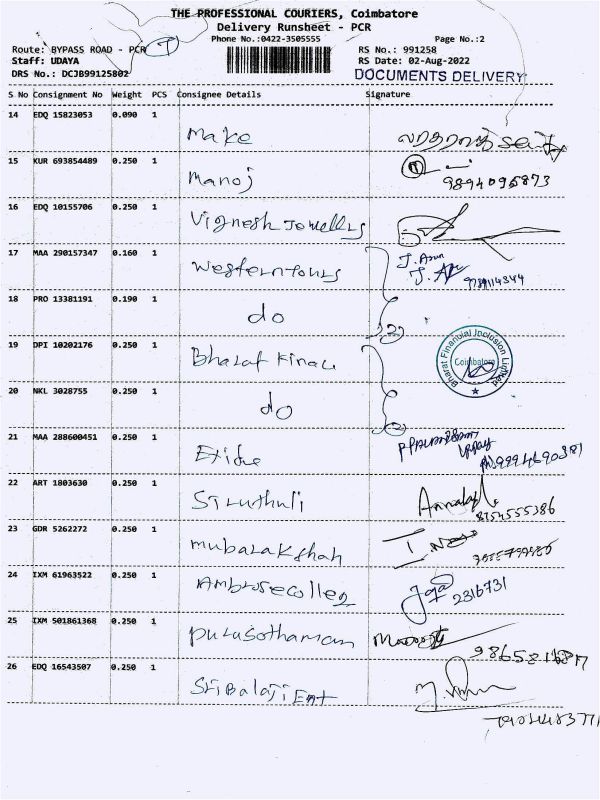 THE PROFESSIONAL COURIERS, Coimbatore
Delivery Runsheet - PCR
Phone No.:0422-3505555 Page No.:2
Route: BYPASS ROAD - PCR RS No.: 991258
Staff: UDAYA RS Date: 02-Aug-2022
DRS No.: DCJB99125802 DOCUMENTS DELIVERY
S No Consignment No Weight PCS Consignee Details Signature
14 EDQ 15823053 0.090 1
Make
15 KUR 693854489 0.250 1
Manoj 9894095873
16 EDQ 10155706 0.250 1
Vignesh Jewellers
17 MAA 290157347 0.160 1
Western tours J. Arun
18 PRO 13381191 0.190 1
do
19 DPI 10202176 0.250 1
Bharat Financial Inclusion Limited
Coimbatore
Bharat
20 NKL 3028755 0.250 1
do
21 MAA 288600451 0.250 1
Exide
22 ART 1803630 0.250 1
Siruthuli 8754555386
23 GDR 5262272 0.250 1
Mubarakshah
24 IXM 61963522 0.250 1
Ambrose college 2316731
25 IXM 501861368 0.250 1
Purusothaman
26 EDQ 16543507 0.250 1
Sri Balaji Ent